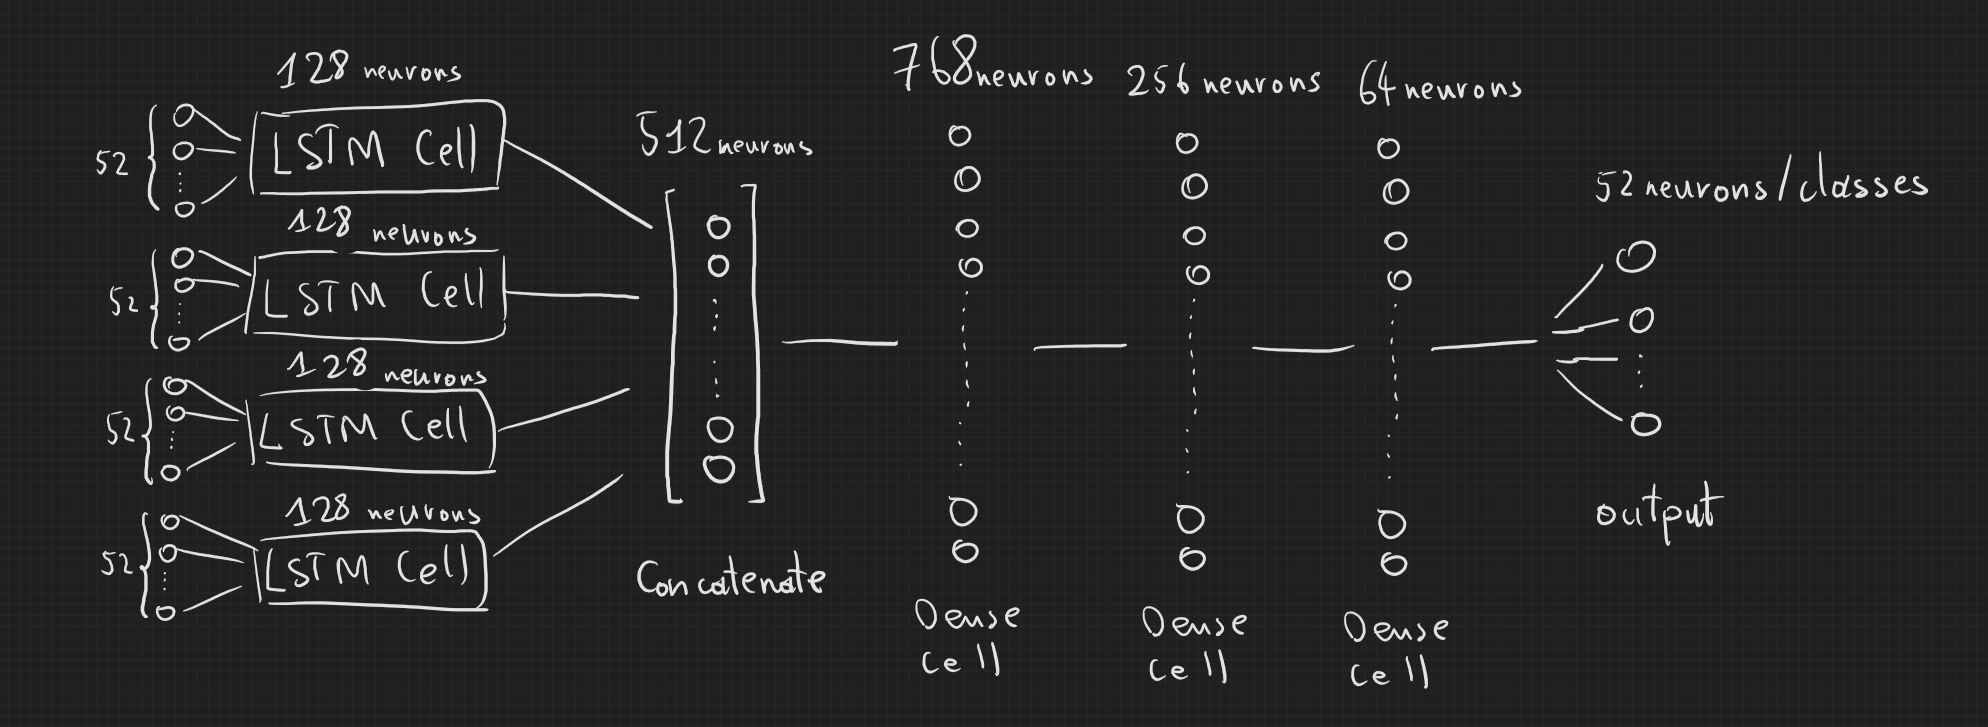 128 neurons
52
LSTM Cell
128 neurons
52
LSTM Cell
128 neurons
52
LSTM Cell
128 neurons
52
LSTM Cell
512 neurons
Concatenate
768 neurons
Dense
cell
256 neurons
Dense
cell
64 neurons
Dense
cell
52 neurons/classes
output